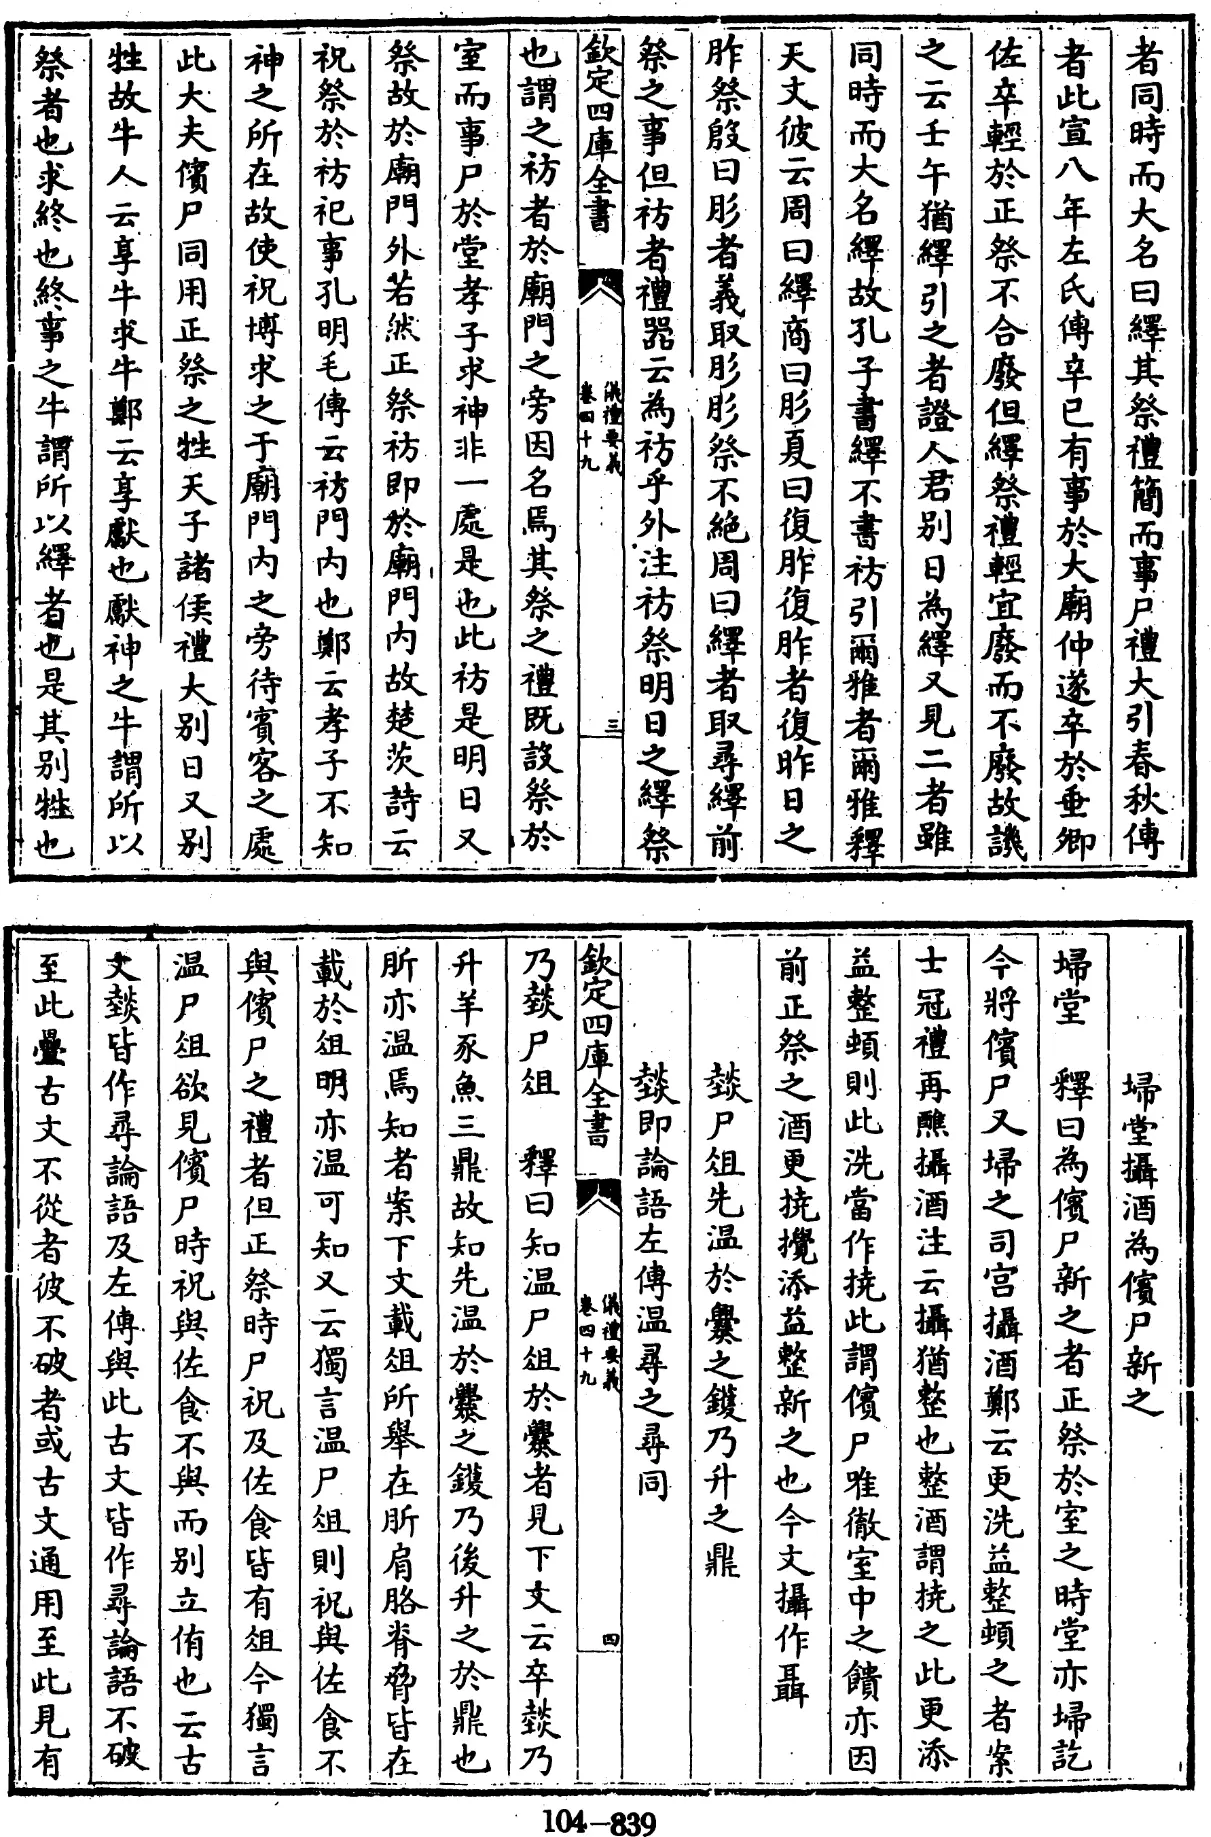 者同時而大名曰繹其祭禮簡而事尸禮大引春秋傳
者此宣八年左氏傳辛巳有事於大廟仲遂卒於垂卿
佐卒輕於正祭不合廢但繹祭禮輕宜廢而不廢故譏
之云壬午猶繹引之者證人君別日為繹又見二者雖
同時而大名繹故孔子書繹不書祊引爾雅者爾雅釋
天文彼云周曰繹商曰肜夏曰復胙復胙者復昨日之
胙祭殷曰肜者義取肜肜祭不絶周曰繹者取尋繹前
祭之事但祊者禮器云為祊乎外注祊祭明日之繹祭
欽定四庫全書
儀禮要義
卷四十九
三
也謂之祊者於廟門之旁因名焉其祭之禮既設祭於
室而事尸於堂孝子求神非一處是也此祊是明日又
祭故於廟門外若然正祭祊即於廟門内故楚茨詩云
祝祭於祊祀事孔明毛傳云祊門内也鄭云孝子不知
神之所在故使祝博求之于廟門内之旁待賓客之處
此大夫儐尸同用正祭之牲天子諸侯禮大別日又別
牲故牛人云享牛求牛鄭云享獻也獻神之牛謂所以
祭者也求終也終事之牛謂所以繹者也是其別牲也
埽堂攝酒為儐尸新之
埽堂　釋曰為儐尸新之者正祭於室之時堂亦埽訖
今將儐尸又埽之司宫攝酒鄭云更洗益整頓之者案
士冠禮再醮攝酒注云攝猶整也整酒謂撓之此更添
益整頓則此洗當作撓此謂儐尸唯徹室中之饋亦因
前正祭之酒更撓攪添益整新之也今文攝作聶
燅尸俎先温於爨之鑊乃升之鼎
燅即論語左傳温尋之尋同
欽定四庫全書
儀禮要義
卷四十九
四
乃燅尸俎　釋曰知温尸俎於爨者見下文云卒燅乃
升羊豕魚三鼎故知先温於爨之鑊乃後升之於鼎也
肵亦温焉知者案下文載俎所舉在肵肩胳脊脅皆在
載於俎明亦温可知又云獨言温尸俎則祝與佐食不
與儐尸之禮者但正祭時尸祝及佐食皆有俎今獨言
温尸俎欲見儐尸時祝與佐食不與而別立侑也云古
文燅皆作尋論語及左傳與此古文皆作尋論語不破
至此疊古文不從者彼不破者或古文通用至此見有
104-839